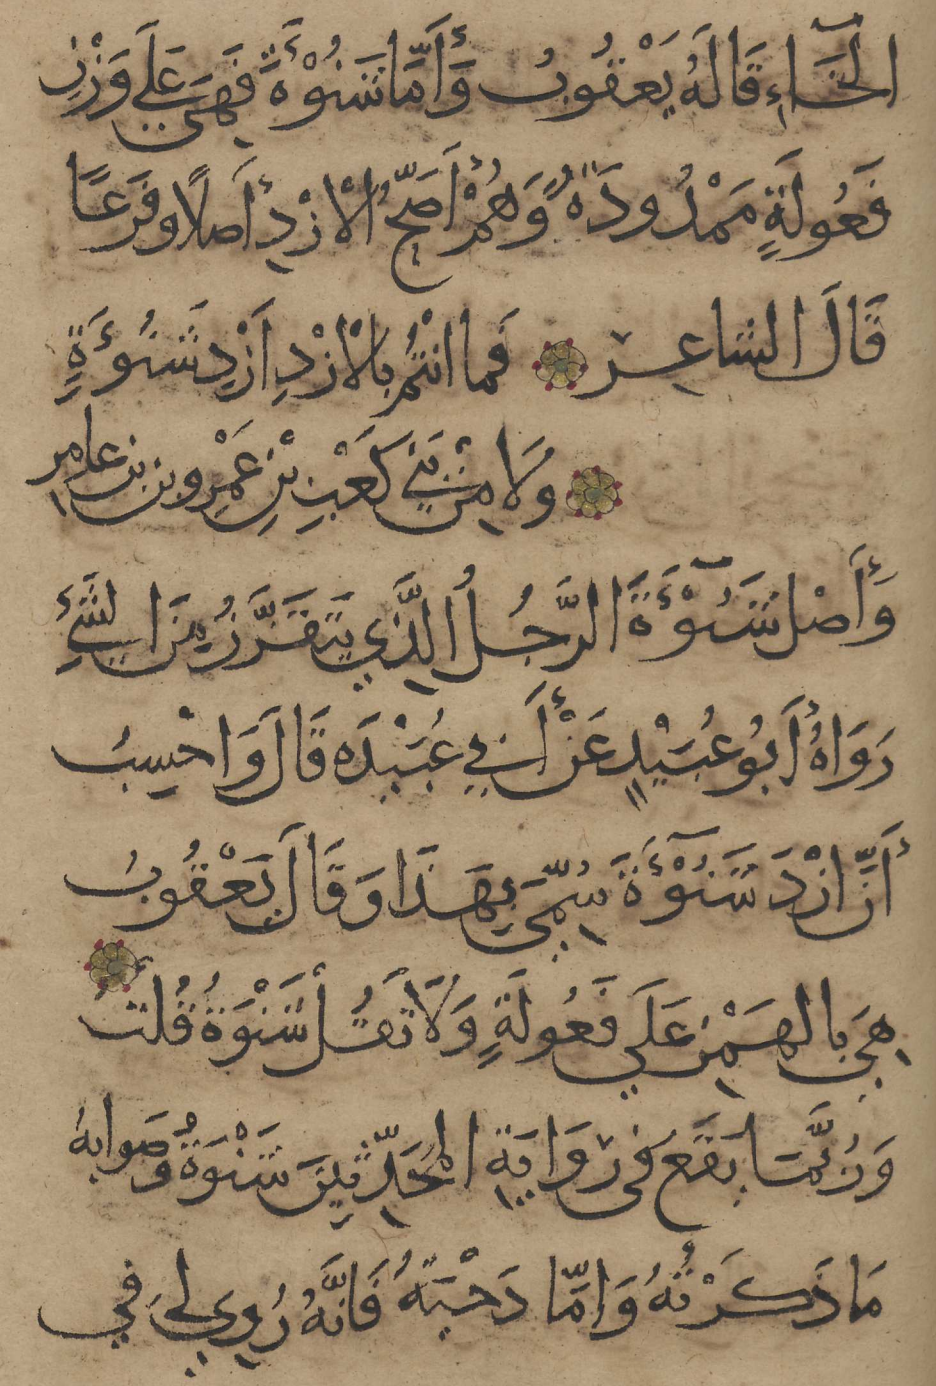 الخَاءِ قَالَهُ يَعْقُوبُ وَأَمَّا شَنُوْءَةَ فَهِيَ عَلَى وَزْنِ
فَعُولَةٍ مَمْدُودَةٌ وَهُمْ أَصَحُّ الْأَزْدِ أَصلًا وفَرَعًا
قَالَ الشاعِر فَما انْتُمُ بالْأَزْدِ أَزْدِ شَنُوءَةٍ
وَلَا مِنْ بَنِي كَعْبِ بْنِ عَمْرِو بن بن عامر
وَأَصْل شَنُوْءَةَ الرَّجُلُ الَّذِي يَتَقَزَّزُ مِنَ الشَّيْءِ
رَوَاهُ أَبُو عُبَيْدٍ عَنْ أَبِي عُبَيْدَه قَالَ وَاحْسِبُ
أَنَّ ازْدَ شَنُوْءَةَ سُمِّيَ بِهَذَا وَقَالَ يَعْقُوبُ
هِيَ بالهَمْزِ عَلَى فَعُولَةٍ وَلَا تَقُلْ شَنْوَةُ قُلتُ
وَرُبَّمَا يَقَعُ في رِوَايَةِ المُحَدِّثِينَ شَنْوَةُ وصَوابهُ
مَا ذَكَرْتُهُ وَامّا دَحْيَةُ فَانَّهُ رُوِيَ لِي في